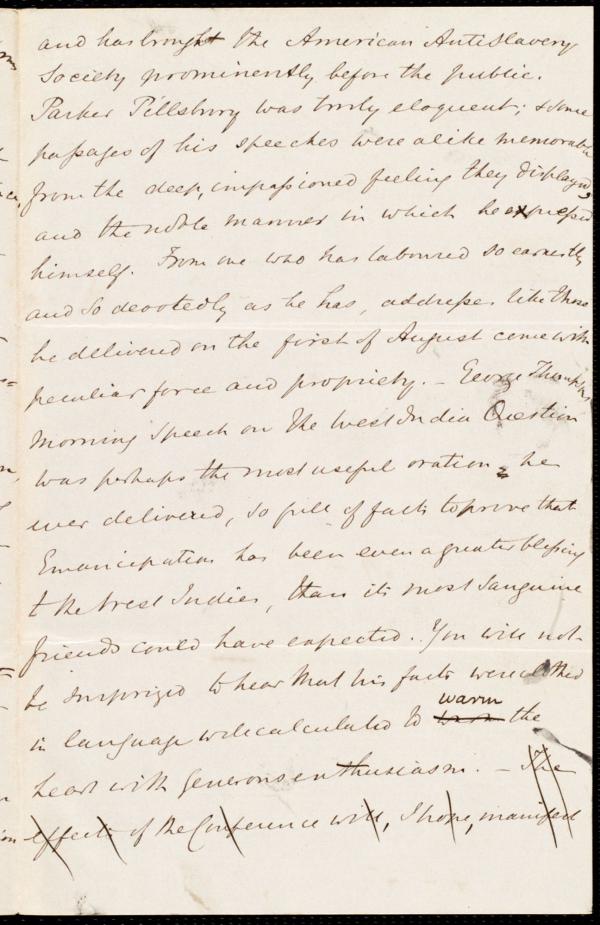 and has brought the American AntiSlavery
Society prominently before the public.
Parker Pillsbury was truly eloquent; & some
passages of his speeches were alike memorable
from the deep, impassioned feeling they displayed,
and the noble manner in which he expressed
himself. From one who has laboured so earnestly
and so devotedly as he has, addresses like those
he delivered on the first of August come with
peculiar force and propriety. — George Thompson's
morning speech on the West India Question
was perhaps the most useful oration he
ever delivered, so full of facts to prove that
Emancipation has been even a greater blessing
to the West Indies, than its most sanguine
friends could have expected. You will not
be surprized to hear that his facts were clothed
in language well calculated to warm the
heart with generous enthusiasm. — The
effects of the Conference will, I hope, manifest